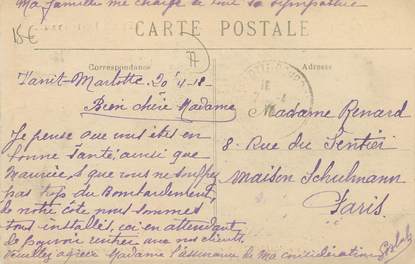 Ma famille me charge de sa sympathie
15€
CARTE POSTALE
Correspondance
Adresse
Tanit-Marlotte. 20-4-18-
Bien chère Madame
Je pense que vous êtes en
bonne santé, ainsi que
Maurice, que vous ne
pas trop du Bombardement,
de notre côté nous sommes
tous installés, ici en attendant
de pouvoir rentrer avec nos clients.
Veuillez agréer Madame l'assurance de ma considération
Madame Renard
8. Rue du Sentier
Maison Schulmann
Paris.